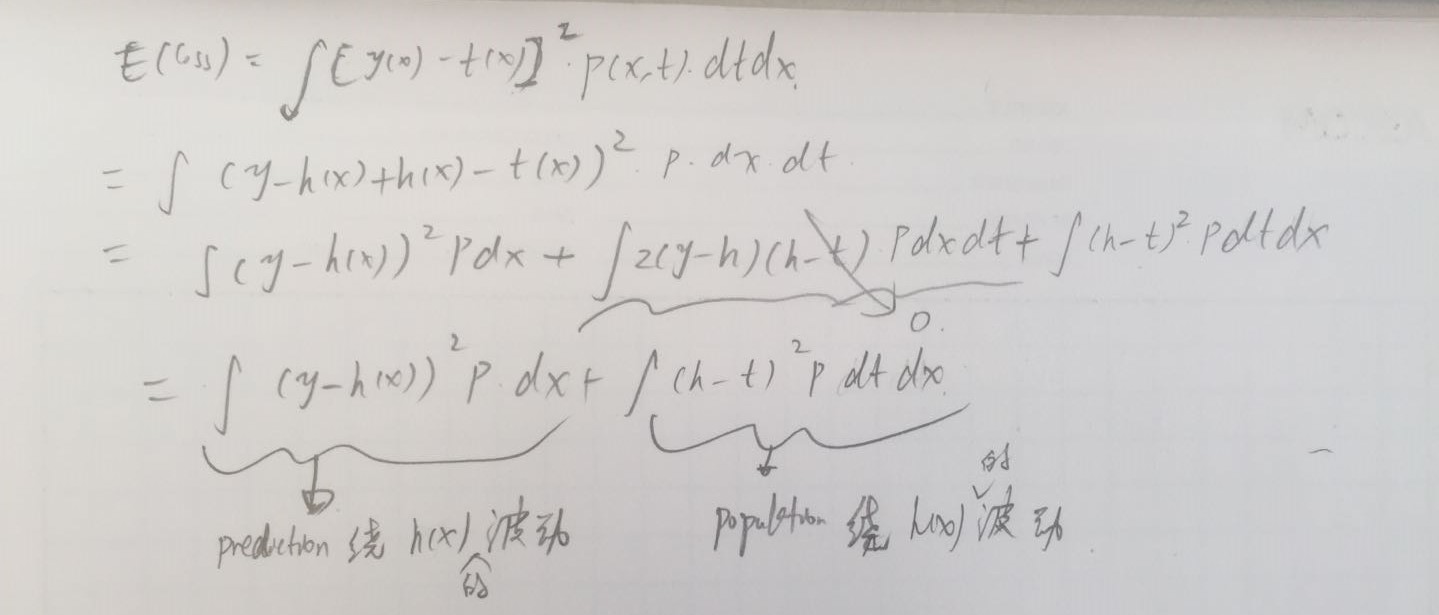 E(loss) = ∫[y(x) - t(x)]² · p(x,t) · dt dx.
= ∫ (y-h(x)+h(x)-t(x))² · p · dx · dt.
= ∫(y-h(x))² p dx + ∫2(y-h)(h-t) · p dx dt + ∫(h-t)² · p dt dx
0.
= ∫ (y-h(x))² p · dx + ∫(h-t)² p dt dx.
prediction 绕 h(x) 的 波动 population 绕 h(x) 的 波动